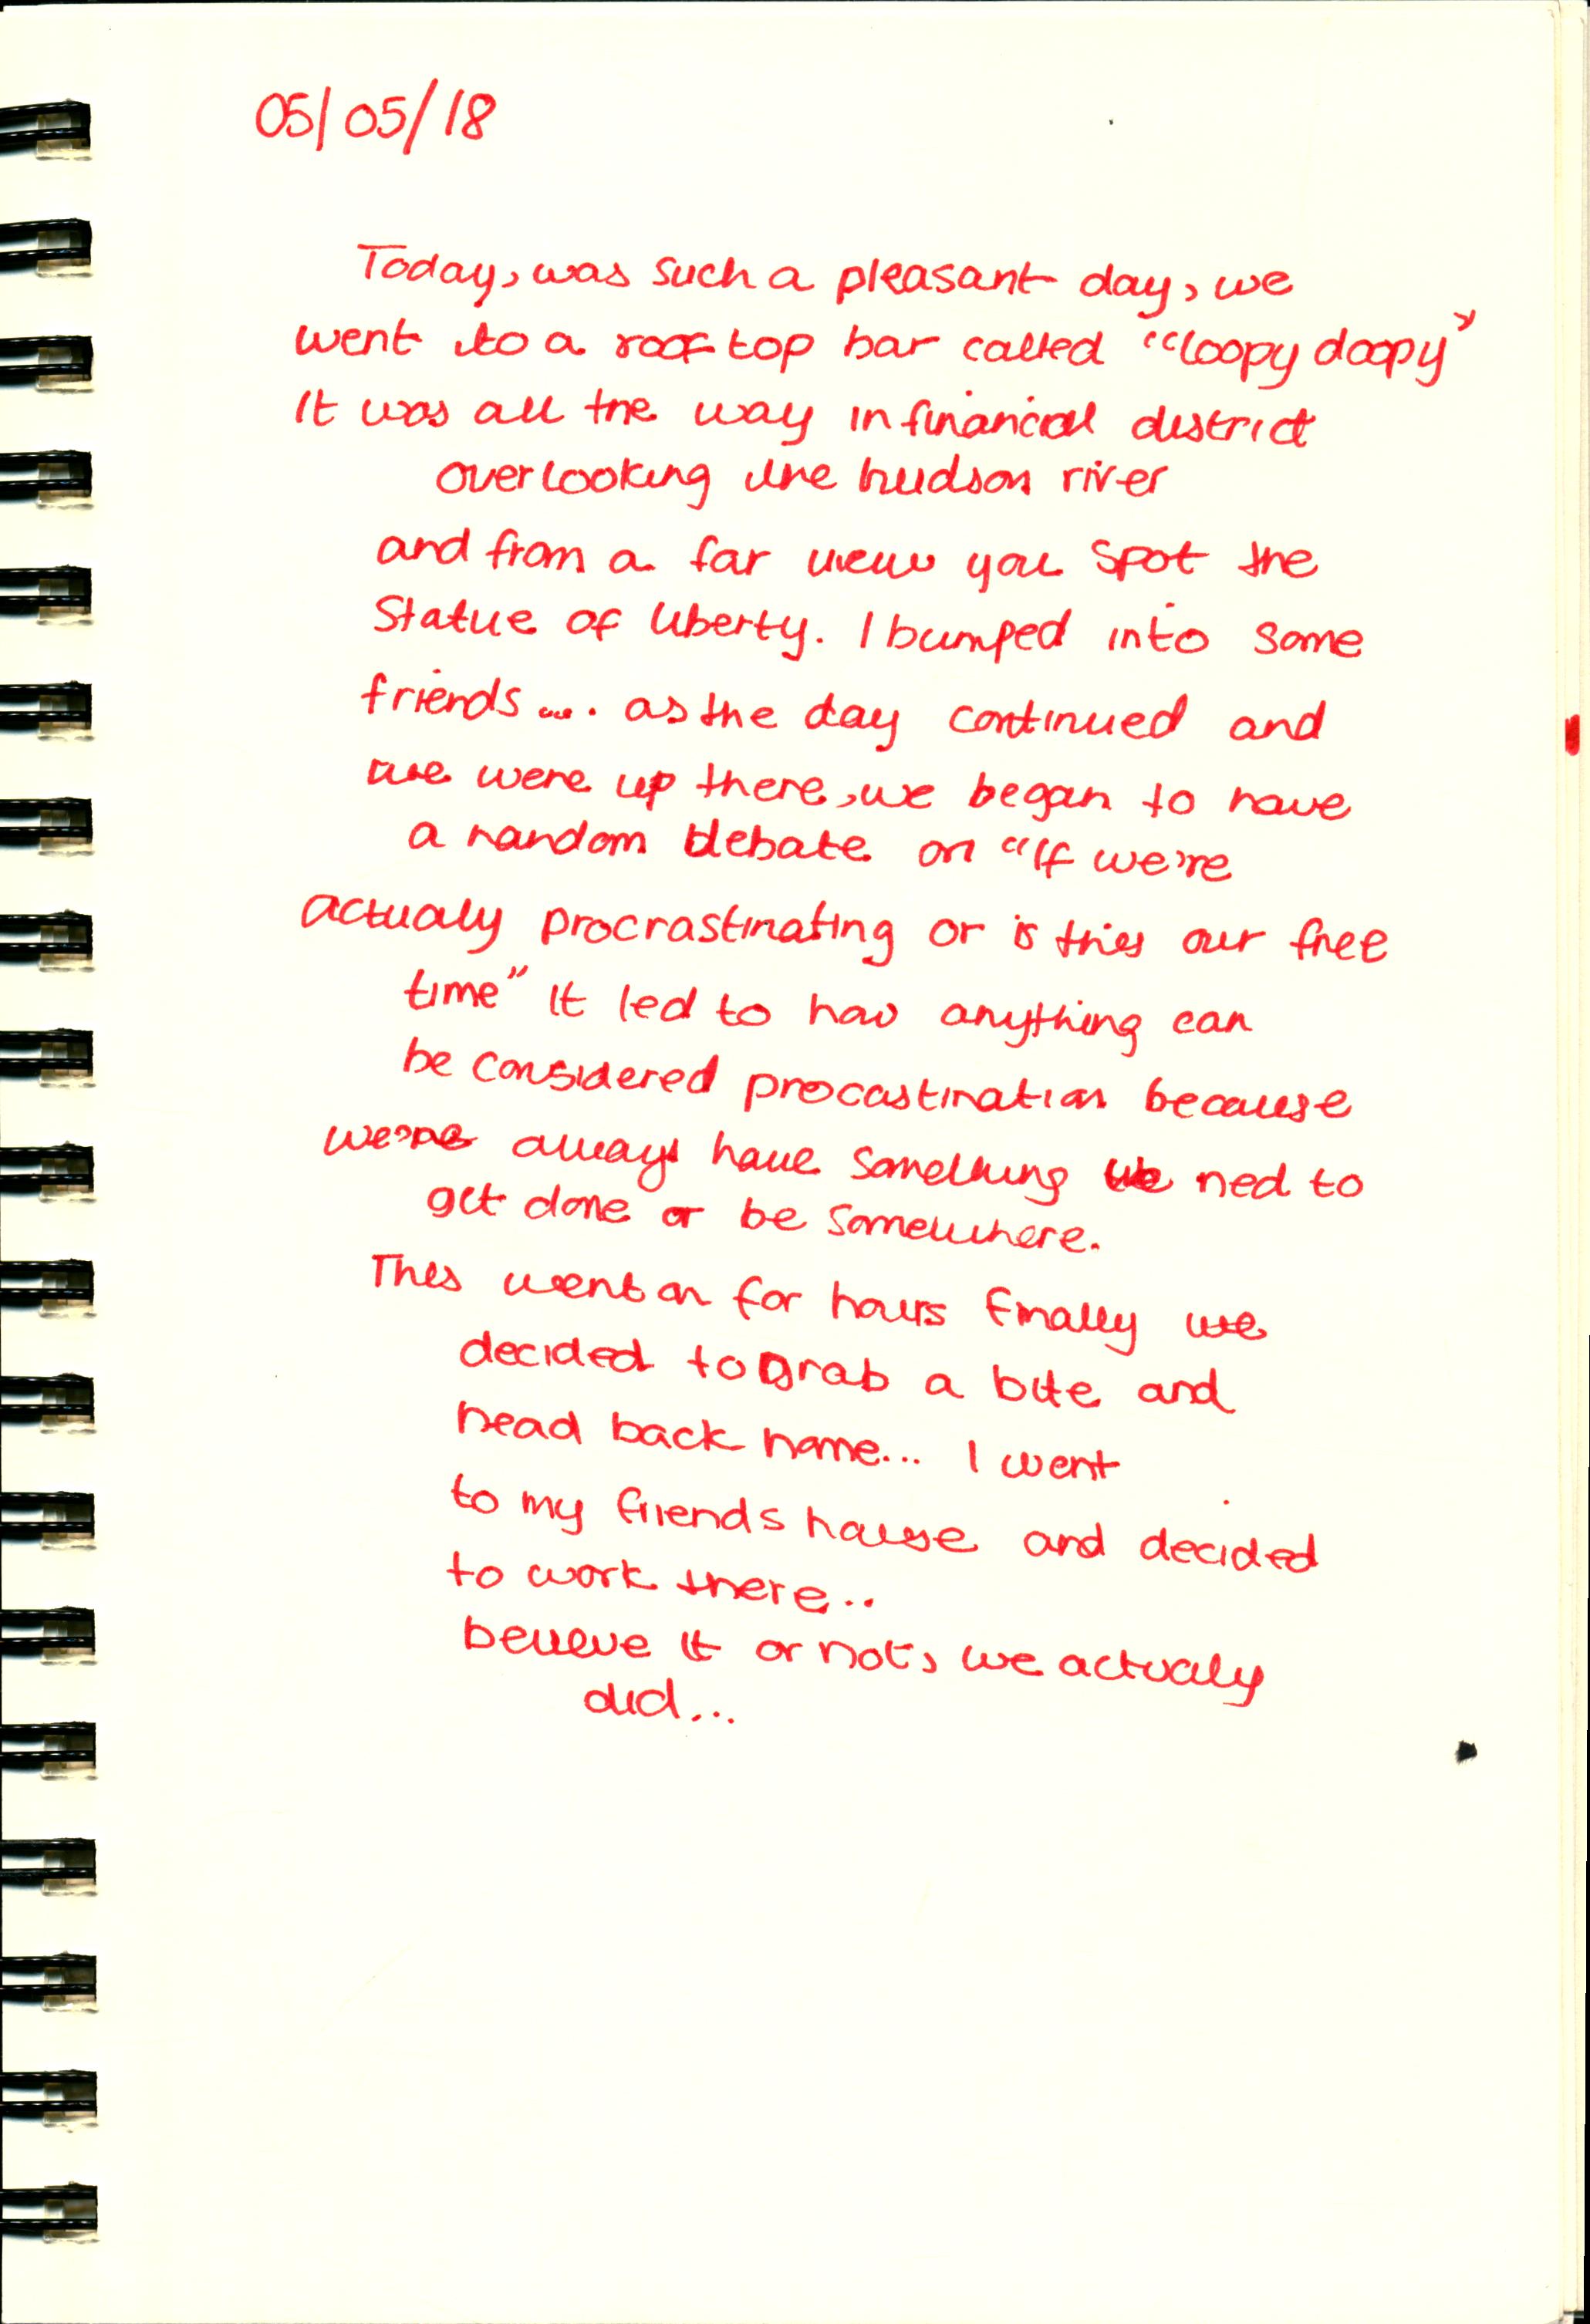 05/05/18
Today, was such a pleasant day, we
went to a roof top bar called "loopy doopy"
It was all the way in financial district
overlooking the hudson river
and from a far view you spot the
Statue of liberty. I bumped into some
friends.... as the day continued and
we were up there, we began to have
a random debate on "If we're
actualy procrastinating or is this our free
time" It led to how anything can
be considered procastination because
we're always have something we ned to
get done or be somewhere.
This went on for hours finally we
decided to grab a bite and
head back home... I went
to my friends house and decided
to work there..
believe it or not, we actualy
did...